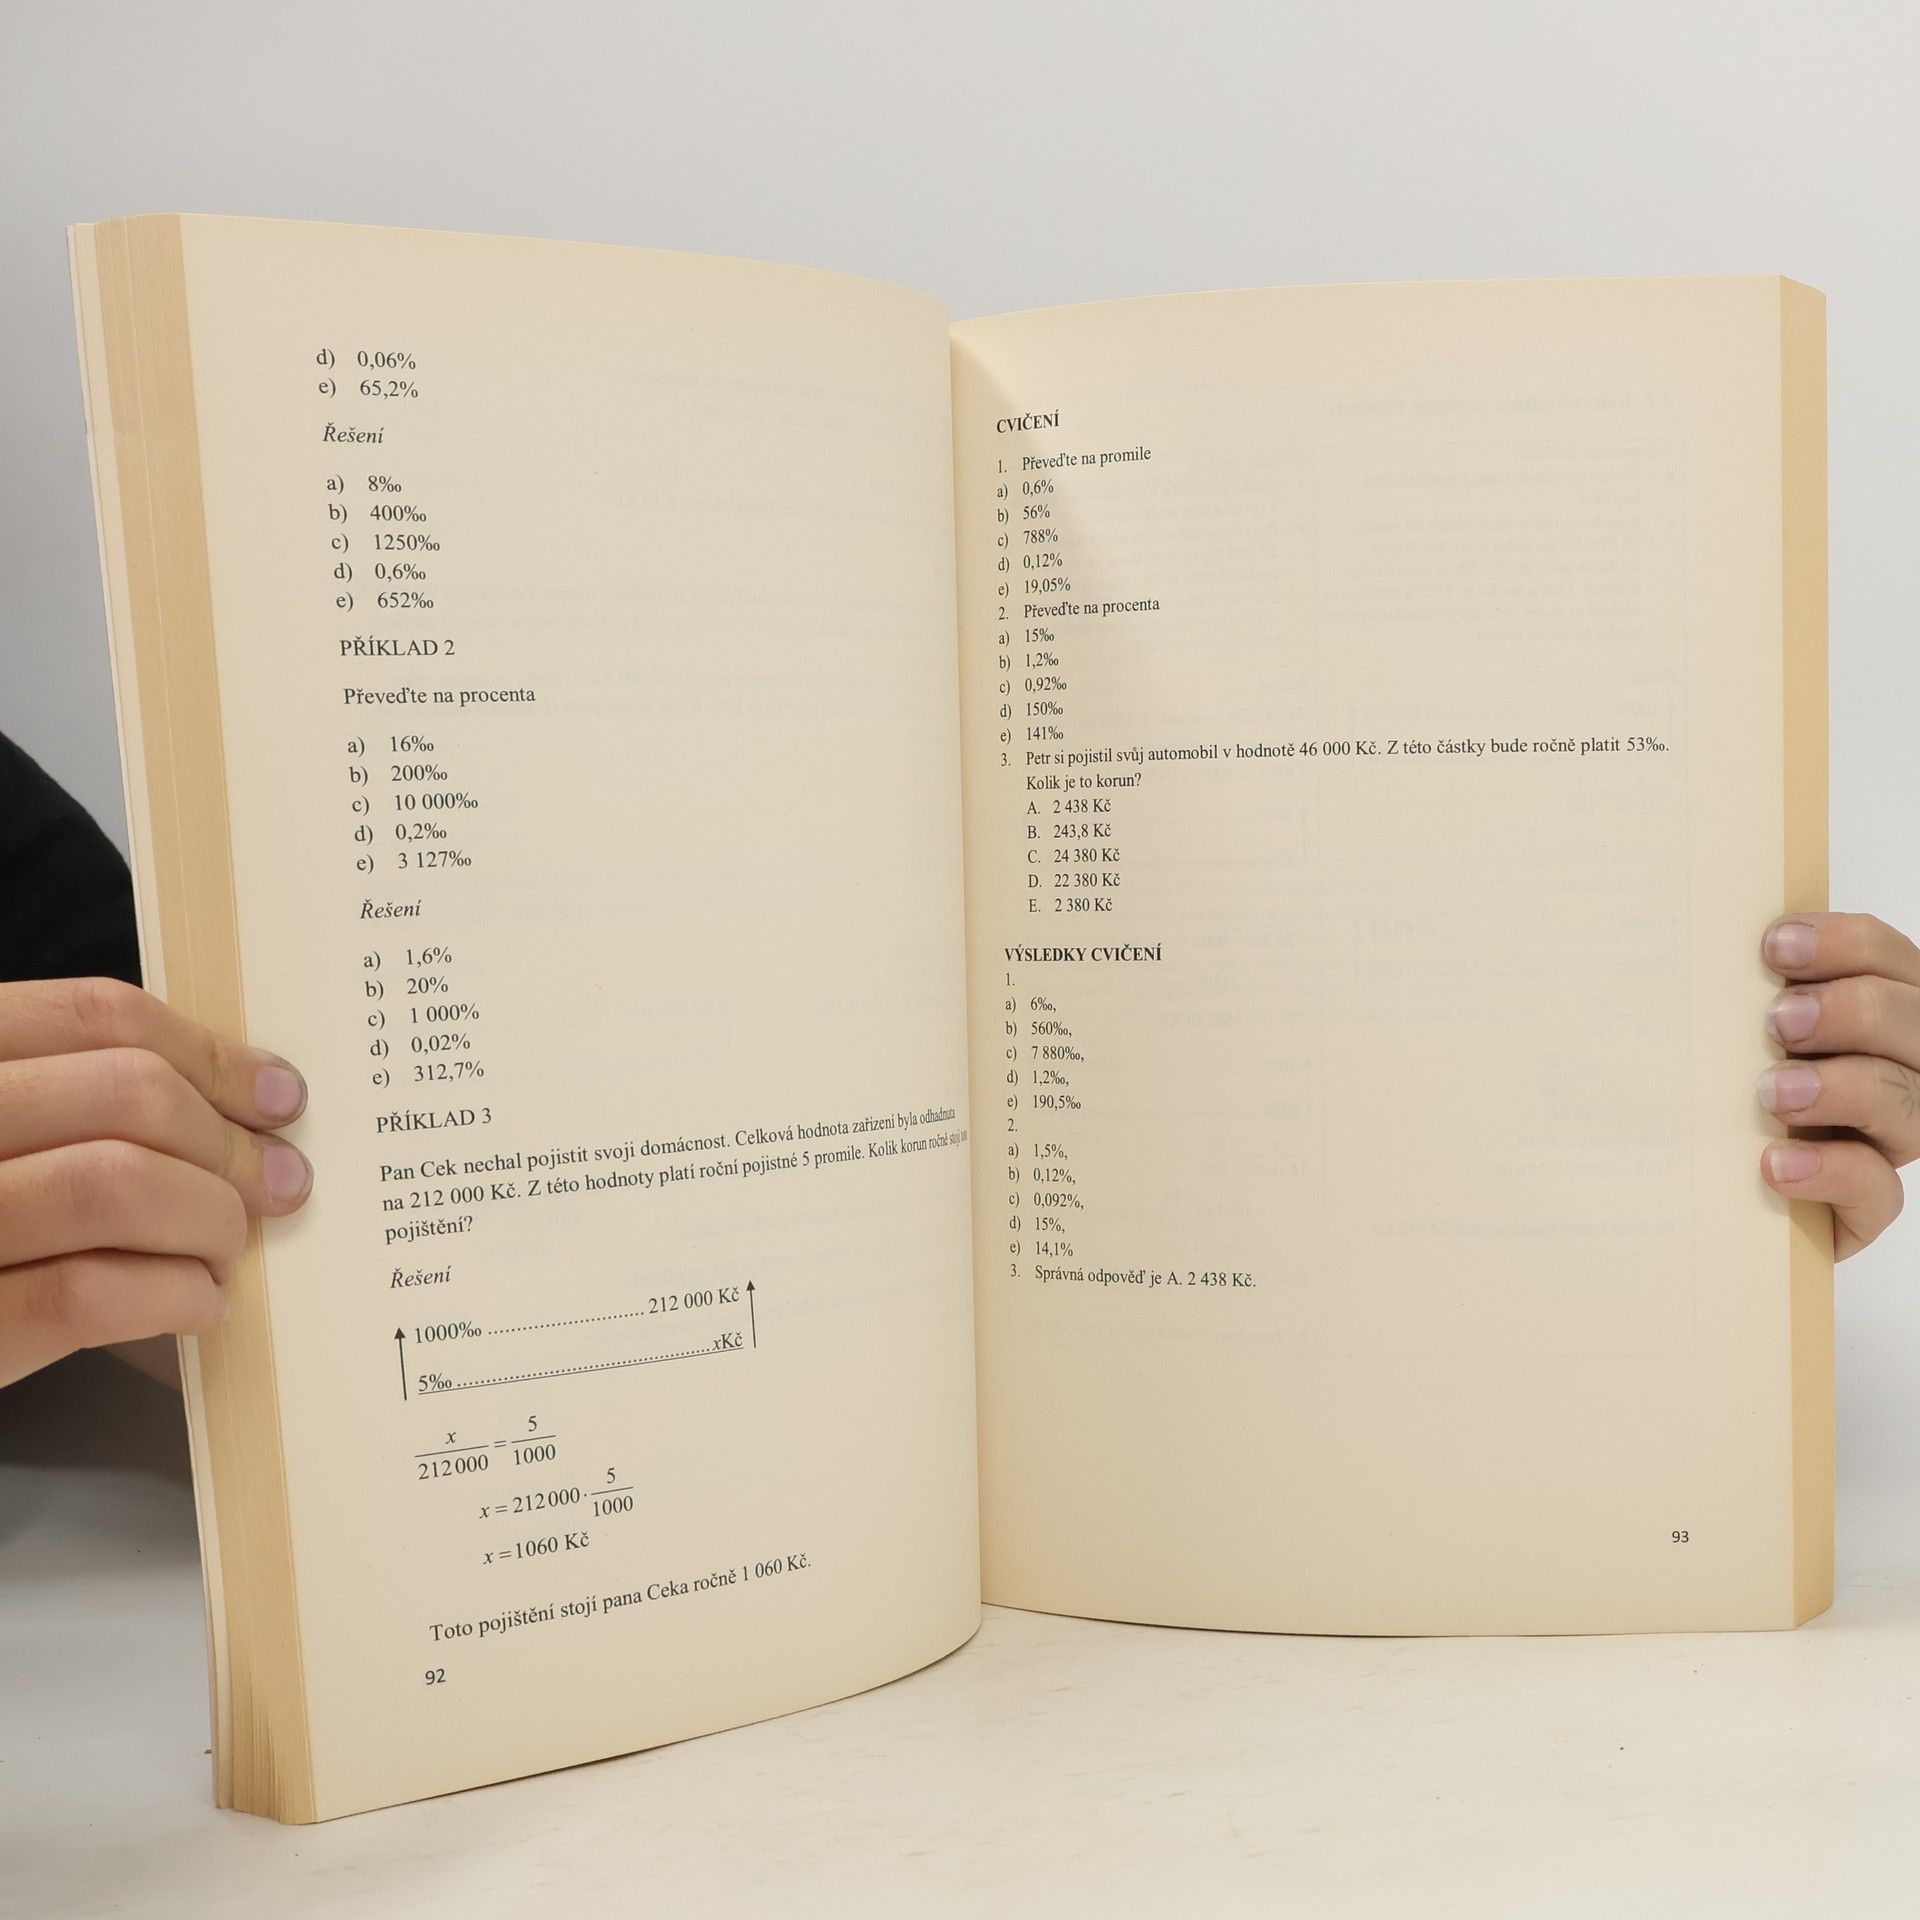 d) 0,06%
e) 65,2%
Řešení
a) 8‰
b) 400‰
c) 1250‰
d) 0,6‰
e) 652‰
PŘÍKLAD 2
Převeďte na procenta
a) 16‰
b) 200‰
c) 10 000‰
d) 0,2‰
e) 3 127‰
Řešení
a) 1,6%
b) 20%
c) 1 000%
d) 0,02%
e) 312,7%
PŘÍKLAD 3
Pan Cek nechal pojistit svoji domácnost. Celková hodnota zařízení byla odhadnuta
na 212 000 Kč. Z této hodnoty platí roční pojistné 5 promile. Kolik korun ročně stojí
pojištění?
Řešení
1000‰ ........................... 212 000 Kč
5‰ ............................................ xKč
x/212 000 = 5/1000
x = 212 000 · 5/1000
x = 1060 Kč
Toto pojištění stojí pana Ceka ročně 1 060 Kč.
92
CVIČENÍ
1. Převeďte na promile
a) 0,6%
b) 56%
c) 788%
d) 0,12%
e) 19,05%
2. Převeďte na procenta
a) 15‰
b) 1,2‰
c) 0,92‰
d) 150‰
e) 141‰
3. Petr si pojistil svůj automobil v hodnotě 46 000 Kč. Z této částky bude ročně platit 53‰.
Kolik je to korun?
A. 2 438 Kč
B. 243,8 Kč
C. 24 380 Kč
D. 22 380 Kč
E. 2 380 Kč
VÝSLEDKY CVIČENÍ
1.
a) 6‰,
b) 560‰,
c) 7 880‰,
d) 1,2‰,
e) 190,5‰
2.
a) 1,5%,
b) 0,12%,
c) 0,092%,
d) 15%,
e) 14,1%
3. Správná odpověď je A. 2 438 Kč.
93